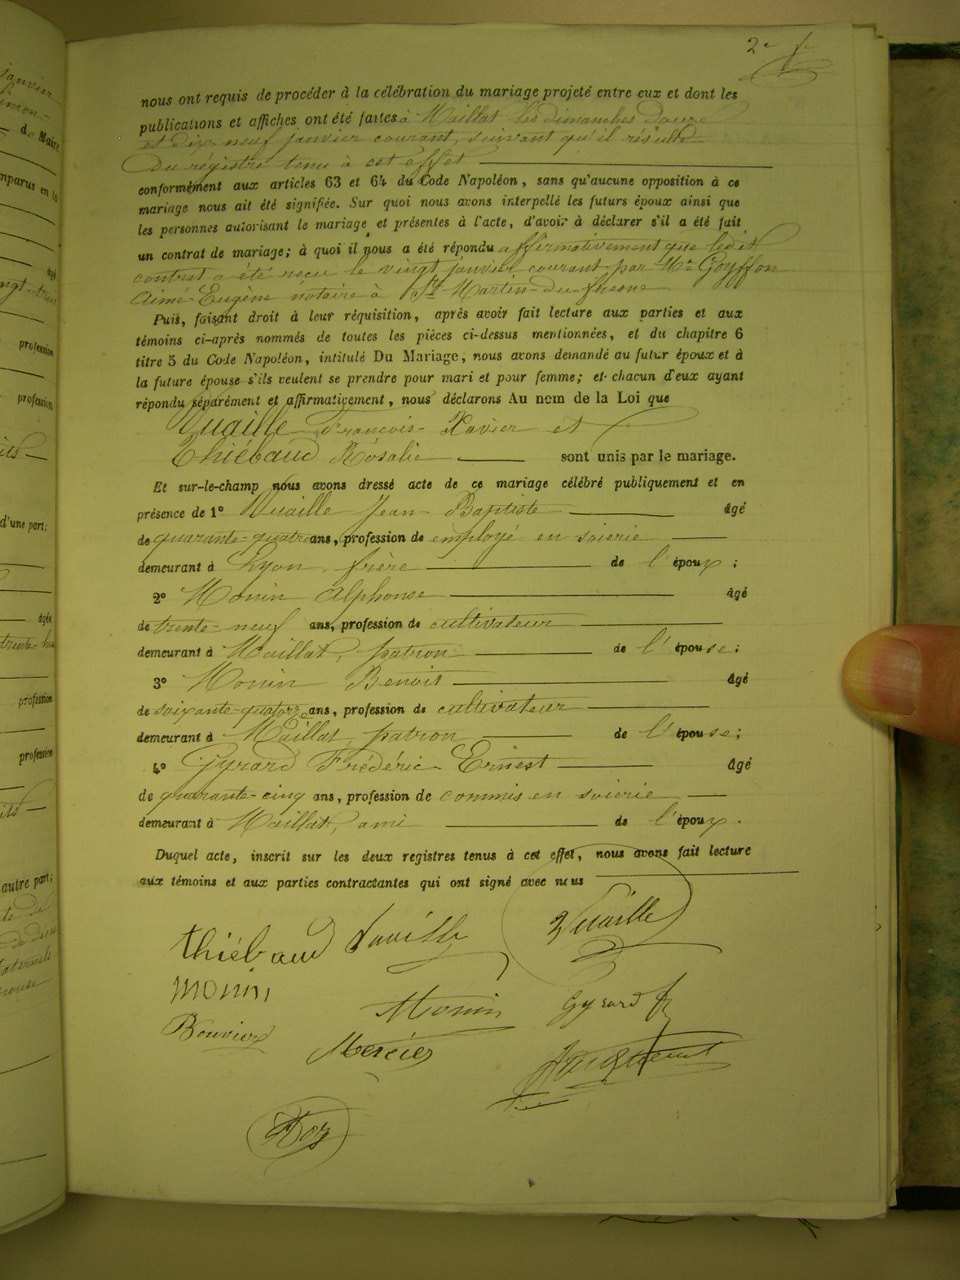 2e f
nous ont requis de procéder à la célébration du mariage projeté entre eux et dont les
publications et affiches ont été faites à Maillat les dimanches douze
et dix neuf janvier courant, suivant qu'il résulte
du registre tenu à cet effet
conformément aux articles 63 et 64 du Code Napoléon, sans qu'aucune opposition à ce
mariage nous ait été signifiée. Sur quoi nous avons interpellé les futurs époux ainsi que
les personnes autorisant le mariage et présentes à l'acte, d'avoir à déclarer s'il a été fait
un contrat de mariage; à quoi il nous a été répondu affirmativement que ledit
contrat a été reçu le vingt janvier courant par Me Goyffon
Aimé Eugène notaire à St Martin-du-fresne
Puis, faisant droit à leur réquisition, après avoir fait lecture aux parties et aux
témoins ci-après nommés de toutes les pièces ci-dessus mentionnées, et du chapitre 6
titre 5 du Code Napoléon, intitulé Du Mariage, nous avons demandé au futur époux et à
la future épouse s'ils veulent se prendre pour mari et pour femme; et chacun d'eux ayant
répondu séparément et affirmativement, nous déclarons Au nom de la Loi que
Vuaille François-Xavier et
Thiébaud Rosalie sont unis par le mariage.
Et sur-le-champ nous avons dressé acte de ce mariage célébré publiquement et en
présence de 1° Vuaille Jean-Baptiste âgé
de quarante-quatre ans, profession de employé en soierie
demeurant à Lyon, frère de l'époux;
2° Monin Alphonse âgé
de trente-neuf ans, profession de cultivateur
demeurant à Maillat, patron de l'épouse;
3° Monin Benoit âgé
de soixante-quatorze ans, profession de cultivateur
demeurant à Maillat, patron de l'épouse;
4° Gyrard Frédéric-Ernest âgé
de quarante-cinq ans, profession de commis en soierie
demeurant à Maillat, ami de l'époux.
Duquel acte, inscrit sur les deux registres tenus à cet effet, nous avons fait lecture
aux témoins et aux parties contractantes qui ont signé avec nous
thiébaud Vuaille
monin Monin Gyrard
Bouvier Mercier